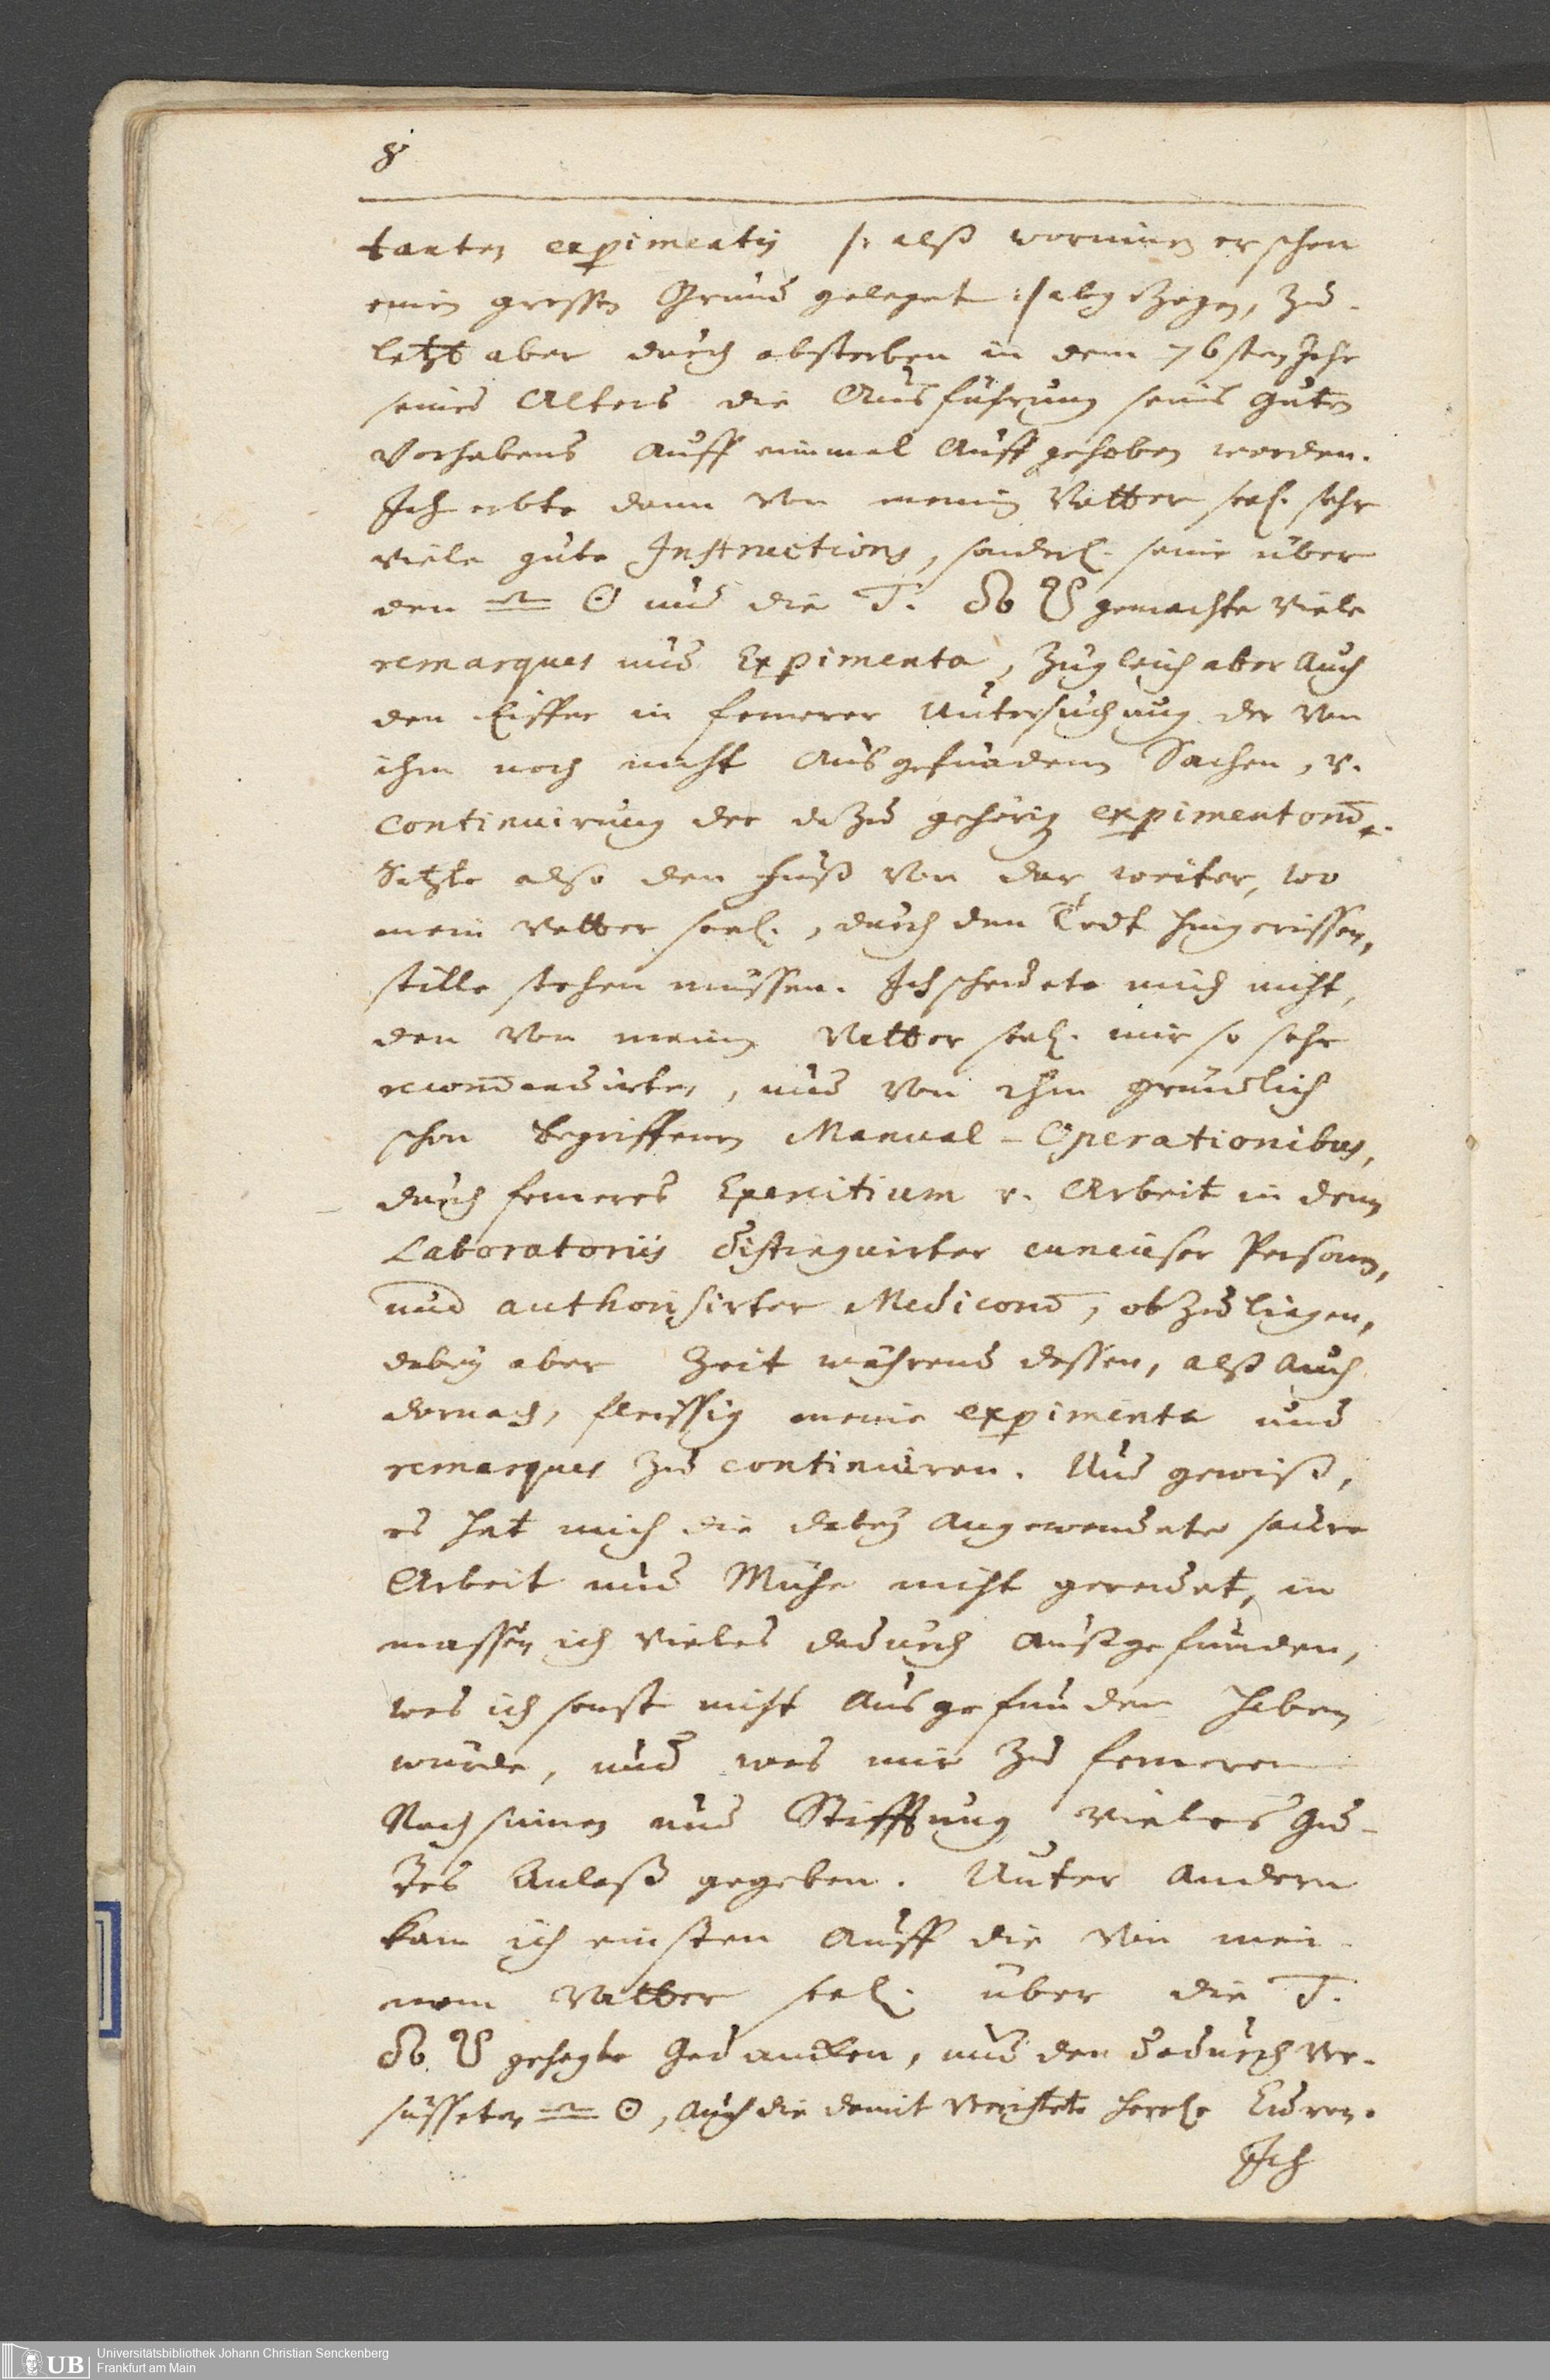 8
tanten expimentis /: alß worinnen er schon
einen grossen Grund geleget :/ abgezogen, zu-
letzt aber durch absterben in dem 76sten Jahr
seines Alters die Ausführung seines guten
Vorhabens auff einmal auffgehoben worden.
Ich erbte dann von meinem Vatter seel. sehr
viele gute Instructions, sonderl. seine über
den ☉ und die T. ♁ gemachte viele
remarques und Expimenta, zugleich aber auch
den Eiffer in fernerer Untersuchung der von
ihm noch nicht ausgefundenen Sachen, v.
continuirung der dazu gehörigen expimentorum.
Setzte also den Fuß von dar weiter, wo
mein Vatter seel., durch den Todt hingerissen,
stille stehen müssen. Ich scheuete mich nicht,
den von meinem Vatter seel. mir so sehr
recommendirten, und von ihm gründlich
schon begriffenen Manual-Operationibus,
durch ferneres Exercitium v. Arbeit in denen
Laboratoriis distinguirter curieuser Persohnen,
und authorisirter Medicorum, obzuliegen,
dabey aber Zeit während dessen, alß auch
darnach, fleissig meine expimenta und
remarques zu continuiren. Und gewiß,
es hat mich die dabey angewendete saure
Arbeit und Mühe nicht gereuet, in
massen ich vieles dadurch außgefunden,
was ich sonst nicht ausgefunden haben
würde, und was mir zu fernerem
Nachsinnen und Stifftung vieles Gu-
tes Anlaß gegeben. Unter andern
kam ich einsten auff die von mei-
nem Vatter seel. über die T.
gehegte Gedancken, und den dadurch ver-
süsseten ☉, auch die damit verrichtete herrl. Curen.
Ich
Universitätsbibliothek Johann Christian Senckenberg
Frankfurt am Main
UB